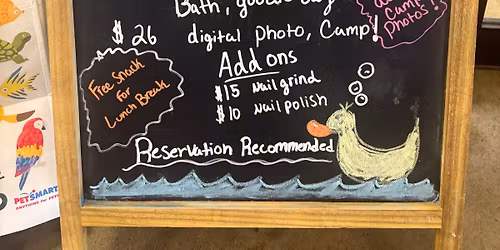 Bath,
$26
digital photo, Camp!
Camp
Photos!
Free Snack
for
Lunch Break
Add ons
$15 Nail grind
$10 Nail polish
Reservation Recommended
PETSMART